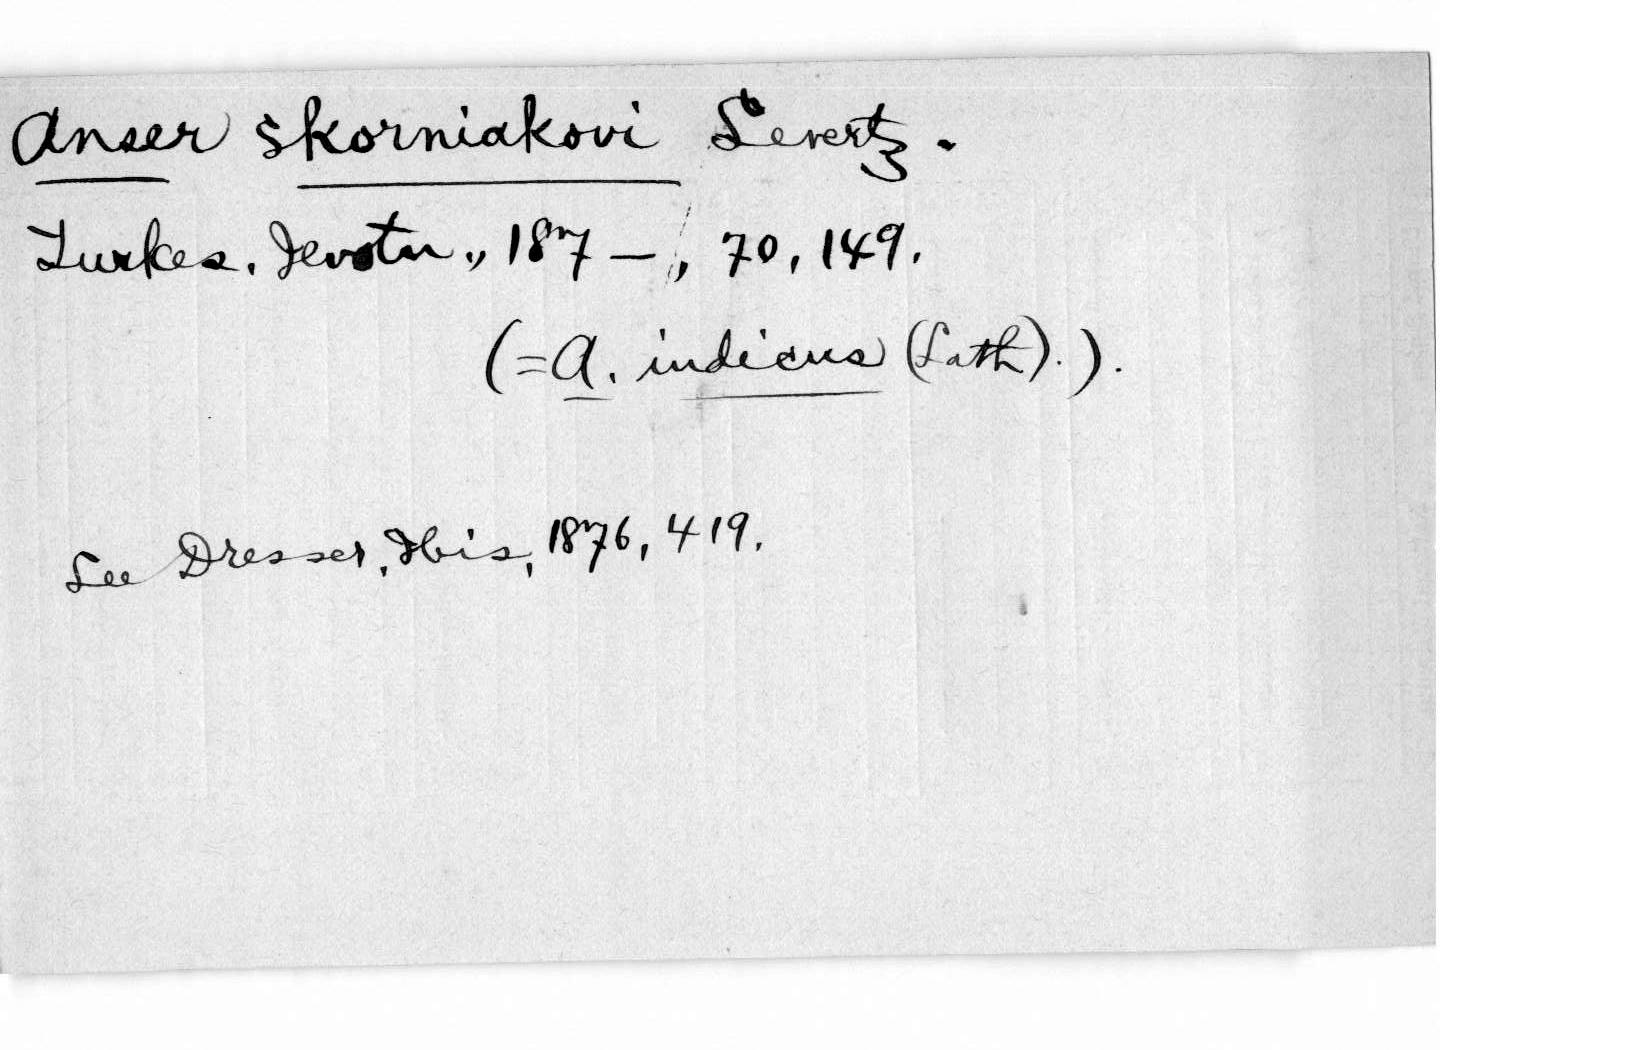 Anser skorniakovi Severtz.
Turkes. Jevotn., 187–, 70, 149.
(=A. indicus (Lath).).
See Dresser, Ibis, 1876, 419.